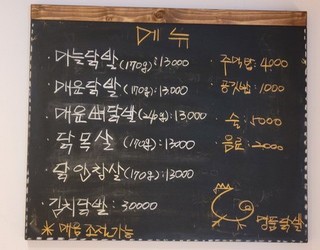 메뉴
· 마늘닭발 (170g) : 13000
· 매운닭발 (170g) : 13000
· 매운뼈닭발 (240g) : 13000
· 닭목살 (170g) : 13000
· 닭안창살 (170g) : 13000
· 김치닭발 : 30000
※ 매움 조절가능
· 주먹밥 : 4000
· 공기밥 : 1000
· 술 : 5000
· 음료 : 2000
명품닭발